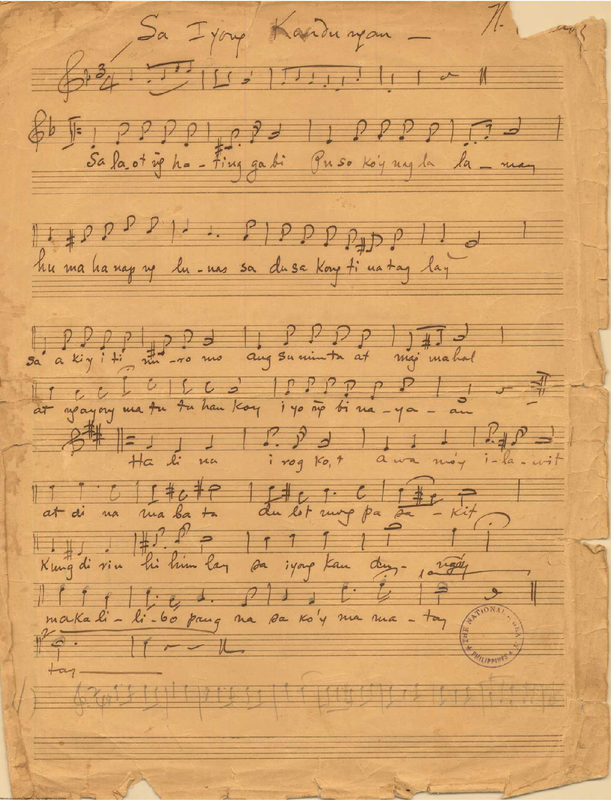 Sa Iyong Kandungan —
3/4
Sa la-ot ng ha-ting gabi Puso ko'y nag la la-man
hu ma hanap ng lu-nas sa dusa kong ti na tag lay
sa a kiy i ti nu-ro mo ang suminta at mag mahal
at ngayong ma tu tu han koy iyo ng bi na-ya-an
Ha li na irog ko, t awa mo'y i-la-wit
at di na ma ba ta du lot mong pa sa-kit
Kung di rin hi him lay sa iyong kan du-ngan
maka li-li-bo pang na sa ko'y ma ma-tay
tay
THE NATIONAL
PHILIPPINES